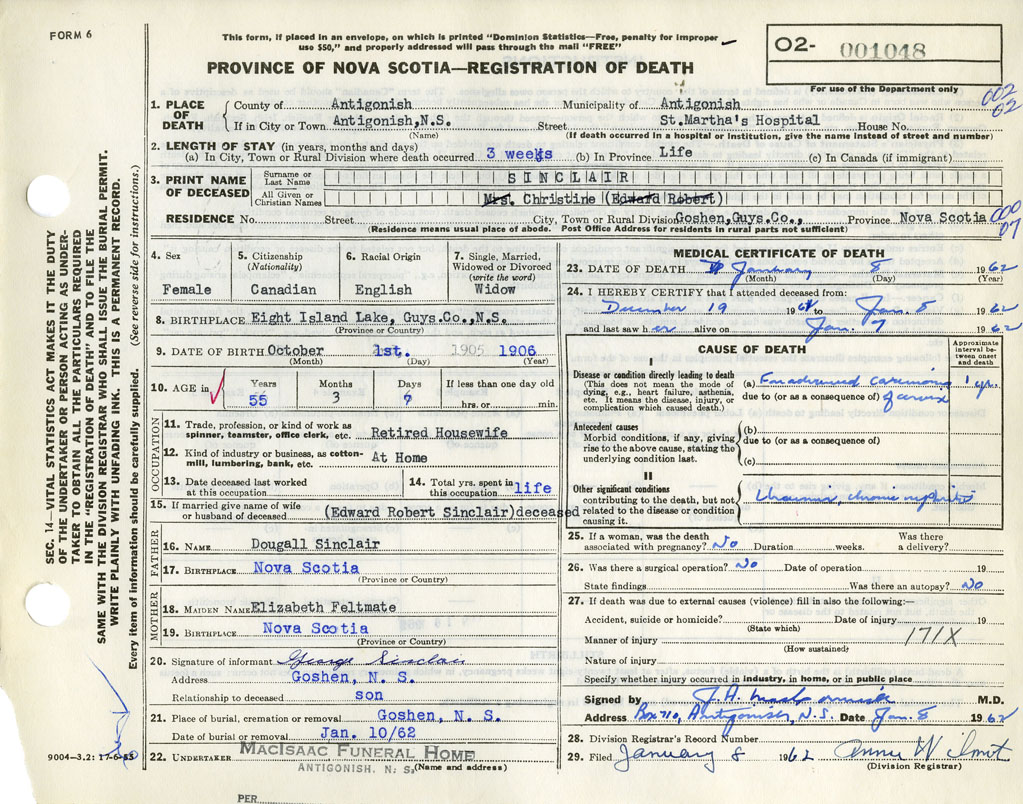 FORM 6
This form, if placed in an envelope, on which is printed "Dominion Statistics—Free, penalty for improper
use $50," and properly addressed will pass through the mail "FREE"
PROVINCE OF NOVA SCOTIA—REGISTRATION OF DEATH
O2- 001048
For use of the Department only
002
02
1. PLACE OF DEATH { County of Antigonish Municipality of Antigonish
If in City or Town Antigonish, N.S. Street St. Martha's Hospital House No.
(Name) (If death occurred in a hospital or institution, give the name instead of street and number)
2. LENGTH OF STAY (in years, months and days)
(a) In City, Town or Rural Division where death occurred 3 weeks (b) In Province Life (c) In Canada (if immigrant)
3. PRINT NAME OF DECEASED { Surname or Last Name SINCLAIR
All Given or Christian Names Mrs. Christine (Edward Robert)
RESIDENCE No. Street City, Town or Rural Division Goshen, Guys. Co., Province Nova Scotia
(Residence means usual place of abode. Post Office Address for residents in rural parts not sufficient)
000
07
4. Sex
Female
5. Citizenship
(Nationality)
Canadian
6. Racial Origin
English
7. Single, Married,
Widowed or Divorced
(write the word)
Widow
8. BIRTHPLACE Eight Island Lake, Guys.Co., N.S.
(Province or Country)
9. DATE OF BIRTH October 1st. 1905 1906
(Month) (Day) (Year)
10. AGE in { Years Months Days If less than one day old
55 3 7 hrs. or min.
OCCUPATION
11. Trade, profession, or kind of work as
spinner, teamster, office clerk, etc. Retired Housewife
12. Kind of industry or business, as cotton-
mill, lumbering, bank, etc. At Home
13. Date deceased last worked
at this occupation
14. Total yrs. spent in
this occupation life
15. If married give name of wife
or husband of deceased (Edward Robert Sinclair) deceased
FATHER
16. NAME Dougall Sinclair
17. BIRTHPLACE Nova Scotia
(Province or Country)
MOTHER
18. MAIDEN NAME Elizabeth Feltmate
19. BIRTHPLACE Nova Scotia
(Province or Country)
20. Signature of informant George Sinclair
Address Goshen, N. S.
Relationship to deceased son
21. Place of burial, cremation or removal Goshen, N. S.
Date of burial or removal Jan. 10/62
22. UNDERTAKER MACISAAC FUNERAL HOME
ANTIGONISH, N. S. (Name and address)
PER
MEDICAL CERTIFICATE OF DEATH
23. DATE OF DEATH January 8 1962
(Month) (Day) (Year)
24. I HEREBY CERTIFY that I attended deceased from:
December 19 1961 to Jan. 8 1962
and last saw her alive on Jan. 7 1962
CAUSE OF DEATH
Approximate
interval be-
tween onset
and death
I
Disease or condition directly leading to death
(This does not mean the mode of
dying, e.g., heart failure, asthenia,
etc. It means the disease, injury, or
complication which caused death.)
(a) carcinoma 1 yr.
due to (or as a consequence) of cervix
Antecedent causes
Morbid conditions, if any, giving
rise to the above cause, stating the
underlying condition last.
(b)
due to (or as a consequence of)
(c)
II
Other significant conditions
contributing to the death, but not
related to the disease or condition
causing it.
Uraemia chronic nephritis
25. If a woman, was the death
associated with pregnancy? No Duration weeks. Was there
a delivery?
26. Was there a surgical operation? No Date of operation 19
State findings Was there an autopsy? No
27. If death was due to external causes (violence) fill in also the following:—
Accident, suicide or homicide? Date of injury 19
(State which)
Manner of injury 171X
(How sustained)
Nature of injury
Specify whether injury occurred in industry, in home, or in public place
Signed by M.D.
Address Box 710, Antigonish, N.S. Date Jan. 8 1962
28. Division Registrar's Record Number
29. Filed January 8 1962
(Division Registrar)
SEC. 14—VITAL STATISTICS ACT MAKES IT THE DUTY
OF THE UNDERTAKER OR PERSON ACTING AS UNDER-
TAKER TO OBTAIN ALL THE PARTICULARS REQUIRED
IN THE "REGISTRATION OF DEATH" AND TO FILE THE
SAME WITH THE DIVISION REGISTRAR WHO SHALL ISSUE THE BURIAL PERMIT.
WRITE PLAINLY WITH UNFADING INK. THIS IS A PERMANENT RECORD.
Every item of information should be carefully supplied. (See reverse side for instructions.)
9004—3.2: